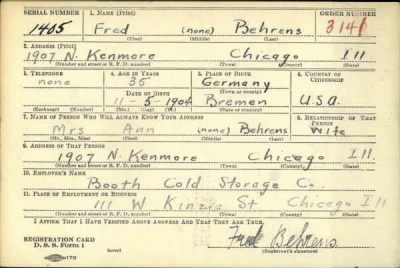 SERIAL NUMBER 1. NAME (Print) ORDER NUMBER
1405 Fred (none) Behrens 3141
(First) (Middle) (Last)
2. ADDRESS (Print)
1907 N. Kenmore Chicago Ill
(Number and street or R. F. D. number) (Town) (County) (State)
3. TELEPHONE 4. AGE IN YEARS 5. PLACE OF BIRTH 6. COUNTRY OF CITIZENSHIP
none 35 Germany
DATE OF BIRTH (Town or county)
11-5-1904 Bremen U.S.A.
(Exchange) (Number) (Mo.) (Day) (Yr.) (State or country)
7. NAME OF PERSON WHO WILL ALWAYS KNOW YOUR ADDRESS 8. RELATIONSHIP OF THAT PERSON
Mrs Ann (none) Behrens Wife
(Mr., Mrs., Miss) (First) (Middle) (Last)
9. ADDRESS OF THAT PERSON
1907 N. Kenmore Chicago Ill.
(Number and street or R. F. D. number) (Town) (County) (State)
10. EMPLOYER'S NAME
Booth Cold Storage Co.
11. PLACE OF EMPLOYMENT OR BUSINESS
111 W Kinzie St Chicago Ill
(Number and street or R. F. D. number) (Town) (County) (State)
I AFFIRM THAT I HAVE VERIFIED ABOVE ANSWERS AND THAT THEY ARE TRUE.
REGISTRATION CARD
D. S. S. Form 1 (over) Fred Behrens
(Registrant's signature)